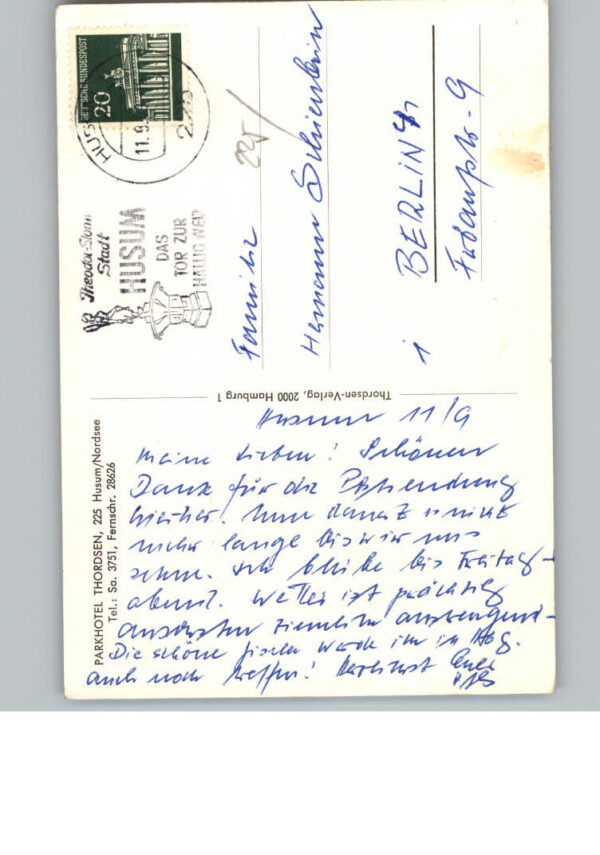 DEUTSCHE BUNDESPOST
20
HUSUM
11.9.
Theodor-Storm
Stadt
HUSUM
DAS
TOR ZUR
HALLIG WELT
225
Familie
Hermann
1 BERLIN 41
9
Thordsen-Verlag, 2000 Hamburg 1
PARKHOTEL THORDSEN, 225 Husum/Nordsee
Tel.: Sa. 3751, Fernschr. 28626
Husum 11/9
Meine Lieben! Schönen
Dank für die Postsendung
hierher. Nun dauert's nicht
mehr lange bis wir uns
sehn. Ich bleibe bis Freitag-
abend. Wetter ist prächtig
ansonsten ziemlich anstrengend-
Die schöne werde ich in Hbg.
auch noch treffen! Herzlichst Euer